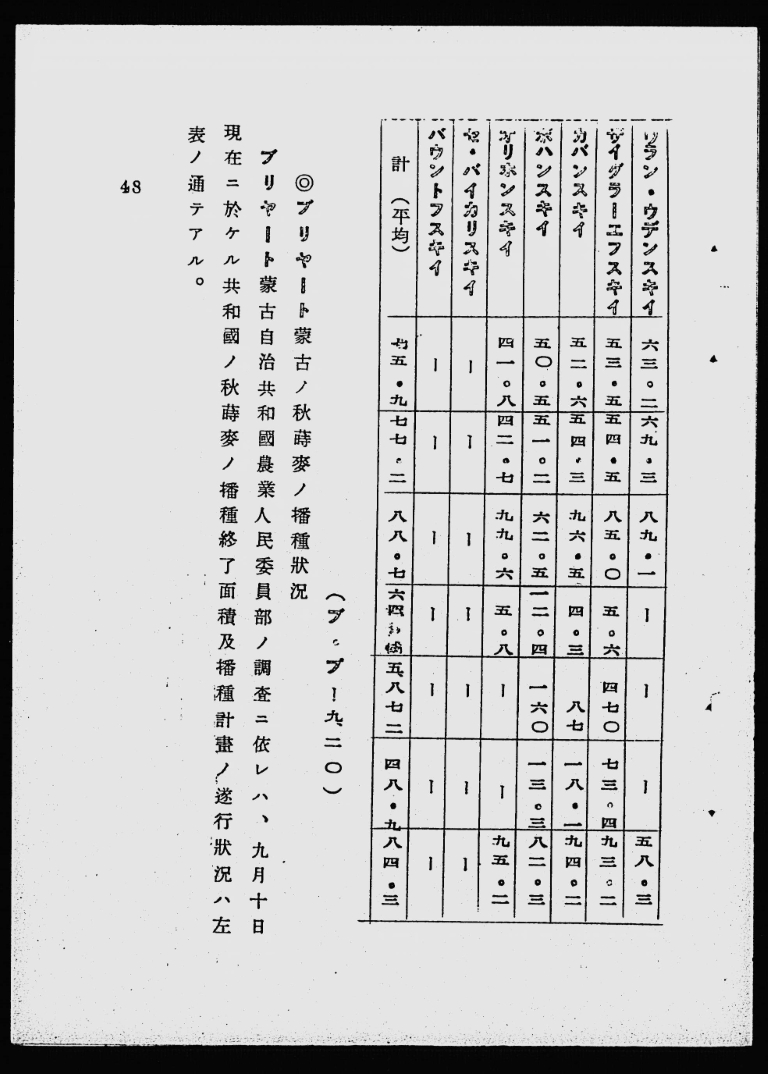 ウラン・ウデンスキイ 六三。二 六九・三 八九・一 ー ー ー 五八・三
ザイグラーエフスキイ 五三・五 五四・五 八五・〇 五。六 四七〇 七三。四 九三。二
カバンスキイ 五二。六 五四・三 九六・五 四・三 八七 一八・一 九四・二
ボハンスキイ 五〇。五 五一。二 六二。五 一二。四 一六〇 一三。三 八二。三
オリホンスキイ 四一。八 四二。七 九九。六 五。八 ー ー 九五。二
セ・バイカリスキイ ー ー ー ー ー ー ー
バウントフスキイ ー ー ー ー ー ー ー
計(平均) 七五・九 七七・二 八八・七 六四 五、八七二 四八・九 八四・三
(ブ。プー九、二〇)
◎ブリヤート蒙古ノ秋蒔麥ノ播種狀況
ブリヤート蒙古自治共和國農業人民委員部ノ調査ニ依レハ、九月十日
現在ニ於ケル共和國ノ秋蒔麥ノ播種終了面積及播種計畫ノ遂行狀況ハ左
表ノ通テアル。
48